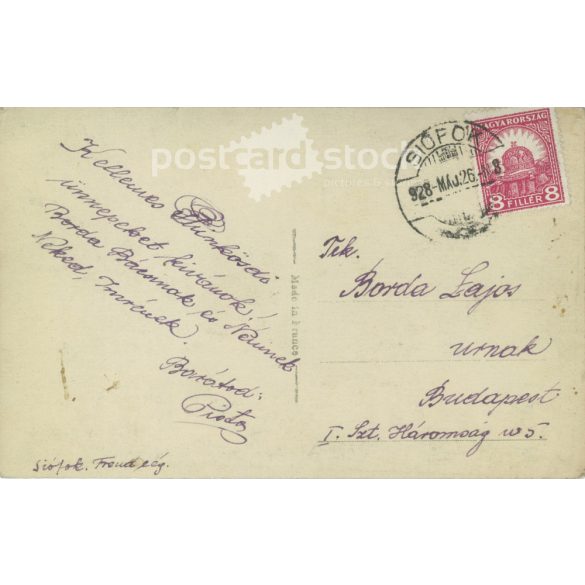 Kellemes Pünkösdi
ünnepeket kívánok!
Borda Bácsinak és Néninek
Neked, Imrének.
Barátod:
Siófok.
Made in France
SIÓFOK
928-MÁJ.26.-8
MAGYARORSZÁG
8 FILLÉR 8
Tek.
Borda Lajos
urnak
Budapest
I. Szt. Háromság u 5.
postcard stock
pictures &